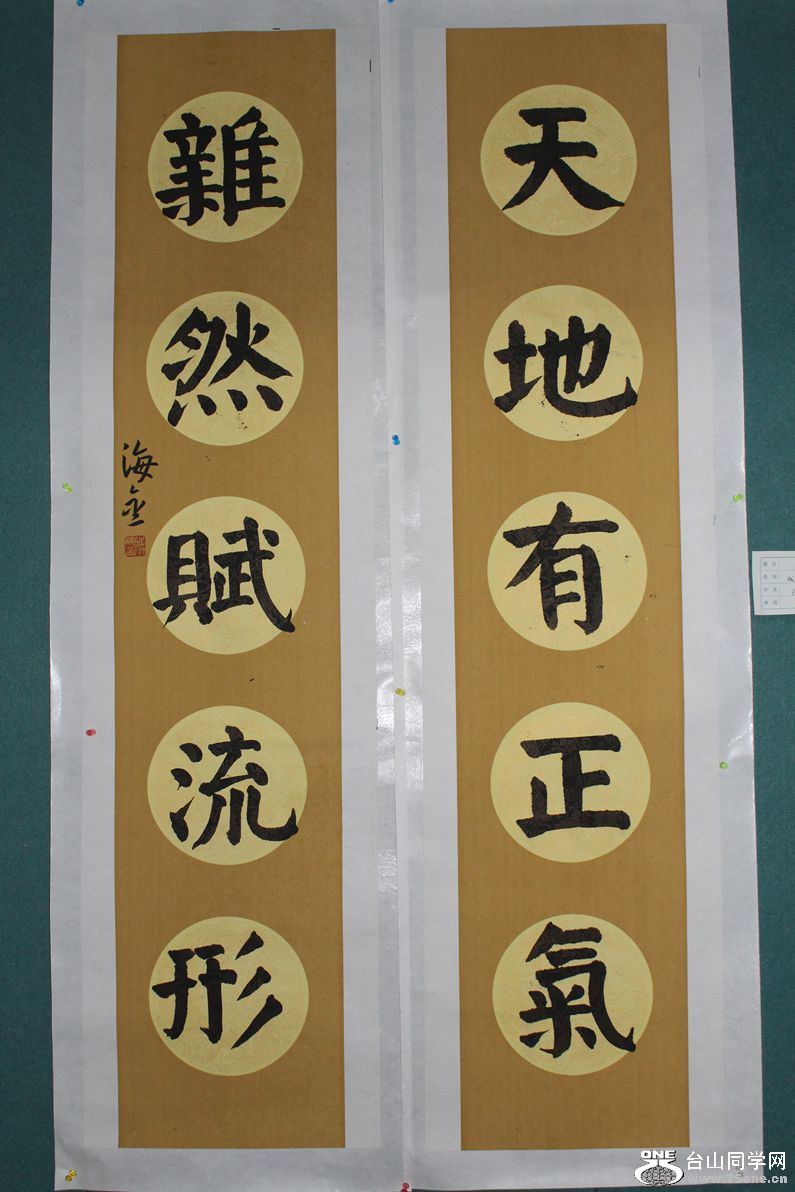 天地有正氣
雜然賦流形
海
ONE
台山同学网
www.75one.cn